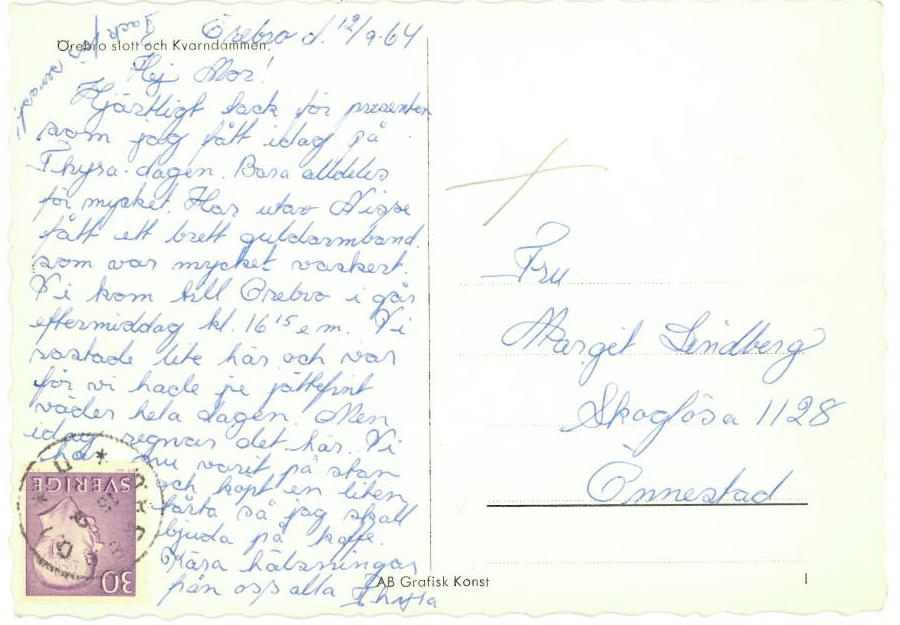 Örebro slott och Kvarndammen.
Örebro d. 12/9-64
Hej Mor!
Hjärtligt tack för presenten
som jag fått idag på
Thyra-dagen. Bara alldeles
för mycket. Har utav Nisse
fått ett brett guldarmband.
som var mycket vackert.
Vi kom till Örebro i går
eftermiddag kl. 16 15 e.m. Vi
rastade lite här och var
för vi hade ju jättefint
väder hela dagen. Men
idag regnar det här. Vi
har nu varit på stan
och köpt en liten
tårta så jag skall
bjuda på kaffe.
Kära hälsningar
från oss alla Thyra
Tack för
Fru
Margit Lindberg
Skoglösa 1128
Önnestad
SVERIGE
30
AB Grafisk Konst